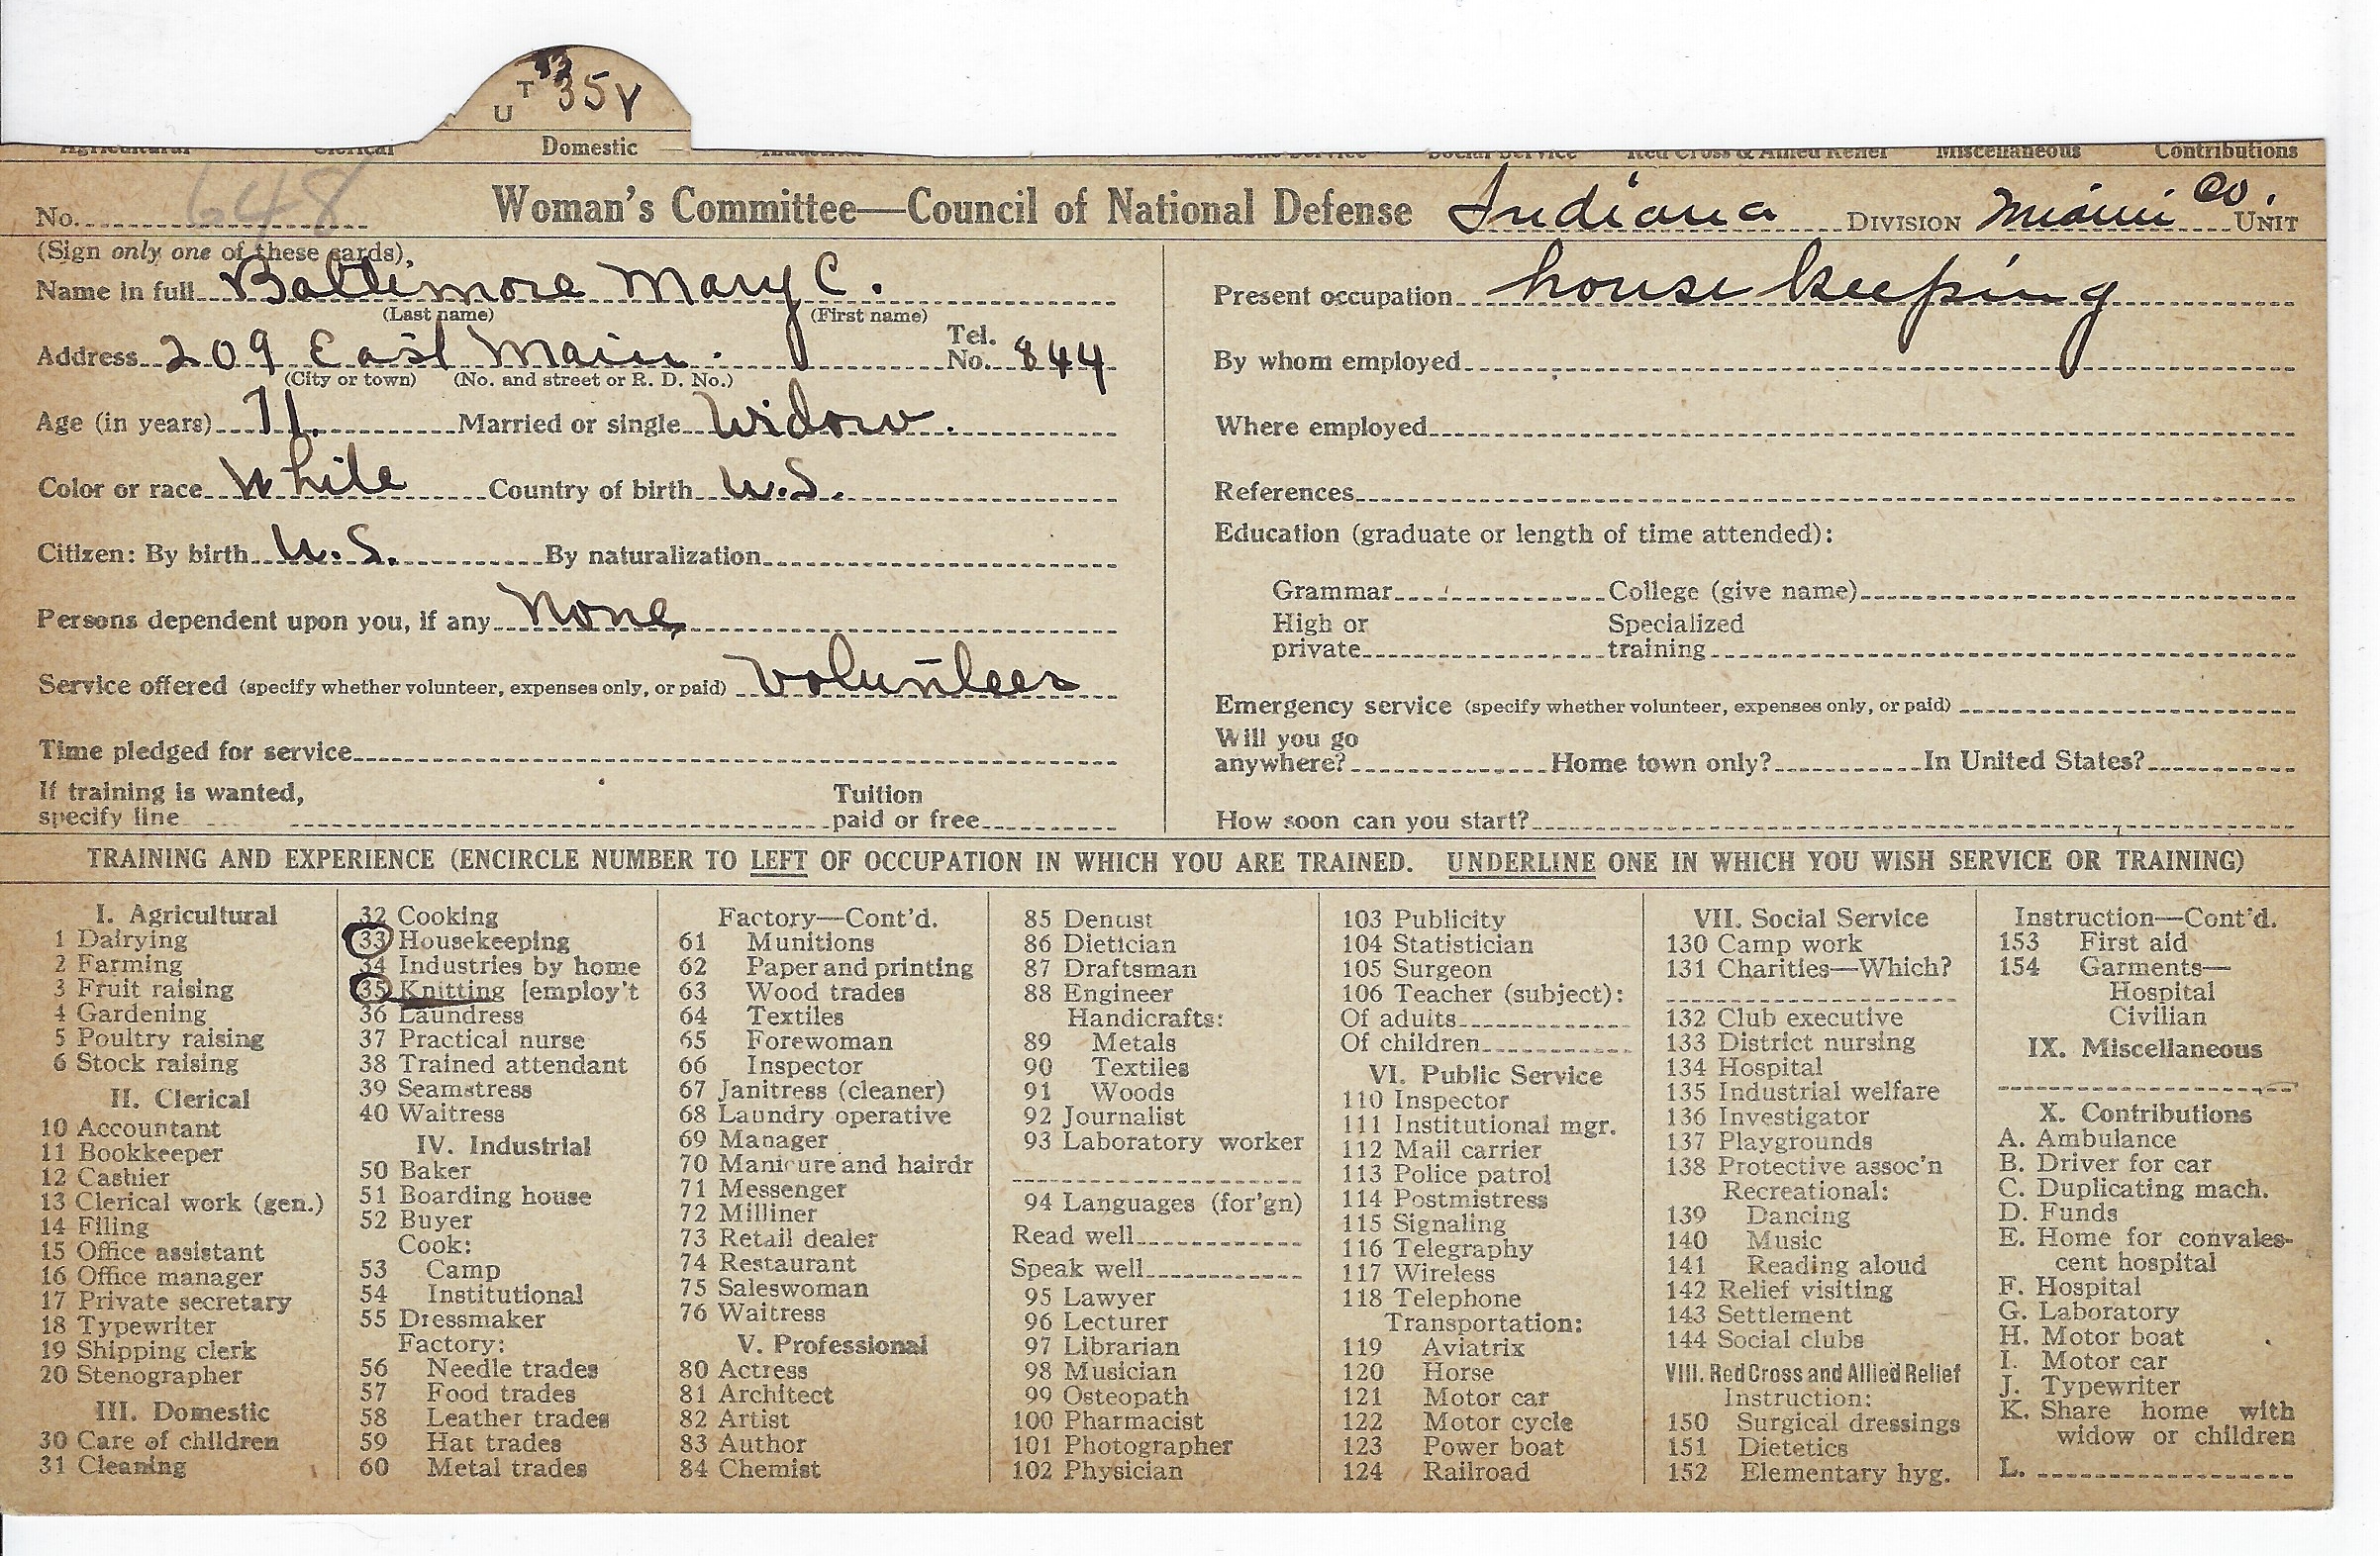 U T 33 35 Y
Domestic
Miscellaneous Contributions
No. 648 Woman's Committee—Council of National Defense Indiana DIVISION Miami Co. UNIT
(Sign only one of these cards)
Name in full Baltimore Mary C.
(Last name) (First name)
Address 209 East Main. Tel. No. 844
(City or town) (No. and street or R. D. No.)
Age (in years) 71. Married or single Widow.
Color or race White Country of birth U.S.
Citizen: By birth U.S. By naturalization
Persons dependent upon you, if any None
Service offered (specify whether volunteer, expenses only, or paid) volunteer
Time pledged for service
If training is wanted, specify line Tuition paid or free
Present occupation house keeping
By whom employed
Where employed
References
Education (graduate or length of time attended):
Grammar College (give name)
High or private Specialized training
Emergency service (specify whether volunteer, expenses only, or paid)
Will you go anywhere? Home town only? In United States?
How soon can you start?
TRAINING AND EXPERIENCE (ENCIRCLE NUMBER TO LEFT OF OCCUPATION IN WHICH YOU ARE TRAINED. UNDERLINE ONE IN WHICH YOU WISH SERVICE OR TRAINING)
I. Agricultural
1 Dairying
2 Farming
3 Fruit raising
4 Gardening
5 Poultry raising
6 Stock raising
II. Clerical
10 Accountant
11 Bookkeeper
12 Cashier
13 Clerical work (gen.)
14 Filing
15 Office assistant
16 Office manager
17 Private secretary
18 Typewriter
19 Shipping clerk
20 Stenographer
III. Domestic
30 Care of children
31 Cleaning
32 Cooking
33 Housekeeping
34 Industries by home
35 Knitting [employ't
36 Laundress
37 Practical nurse
38 Trained attendant
39 Seamstress
40 Waitress
IV. Industrial
50 Baker
51 Boarding house
52 Buyer
Cook:
53 Camp
54 Institutional
55 Dressmaker
Factory:
56 Needle trades
57 Food trades
58 Leather trades
59 Hat trades
60 Metal trades
Factory—Cont'd.
61 Munitions
62 Paper and printing
63 Wood trades
64 Textiles
65 Forewoman
66 Inspector
67 Janitress (cleaner)
68 Laundry operative
69 Manager
70 Manicure and hairdr
71 Messenger
72 Milliner
73 Retail dealer
74 Restaurant
75 Saleswoman
76 Waitress
V. Professional
80 Actress
81 Architect
82 Artist
83 Author
84 Chemist
85 Dentist
86 Dietician
87 Draftsman
88 Engineer
Handicrafts:
89 Metals
90 Textiles
91 Woods
92 Journalist
93 Laboratory worker
94 Languages (for'gn)
Read well
Speak well
95 Lawyer
96 Lecturer
97 Librarian
98 Musician
99 Osteopath
100 Pharmacist
101 Photographer
102 Physician
103 Publicity
104 Statistician
105 Surgeon
106 Teacher (subject):
Of adults
Of children
VI. Public Service
110 Inspector
111 Institutional mgr.
112 Mail carrier
113 Police patrol
114 Postmistress
115 Signaling
116 Telegraphy
117 Wireless
118 Telephone
Transportation:
119 Aviatrix
120 Horse
121 Motor car
122 Motor cycle
123 Power boat
124 Railroad
VII. Social Service
130 Camp work
131 Charities—Which?
132 Club executive
133 District nursing
134 Hospital
135 Industrial welfare
136 Investigator
137 Playgrounds
138 Protective assoc'n
Recreational:
139 Dancing
140 Music
141 Reading aloud
142 Relief visiting
143 Settlement
144 Social clubs
VIII. Red Cross and Allied Relief
Instruction:
150 Surgical dressings
151 Dietetics
152 Elementary hyg.
Instruction—Cont'd.
153 First aid
154 Garments—
Hospital
Civilian
IX. Miscellaneous
X. Contributions
A. Ambulance
B. Driver for car
C. Duplicating mach.
D. Funds
E. Home for convales-
cent hospital
F. Hospital
G. Laboratory
H. Motor boat
I. Motor car
J. Typewriter
K. Share home with
widow or children
L.